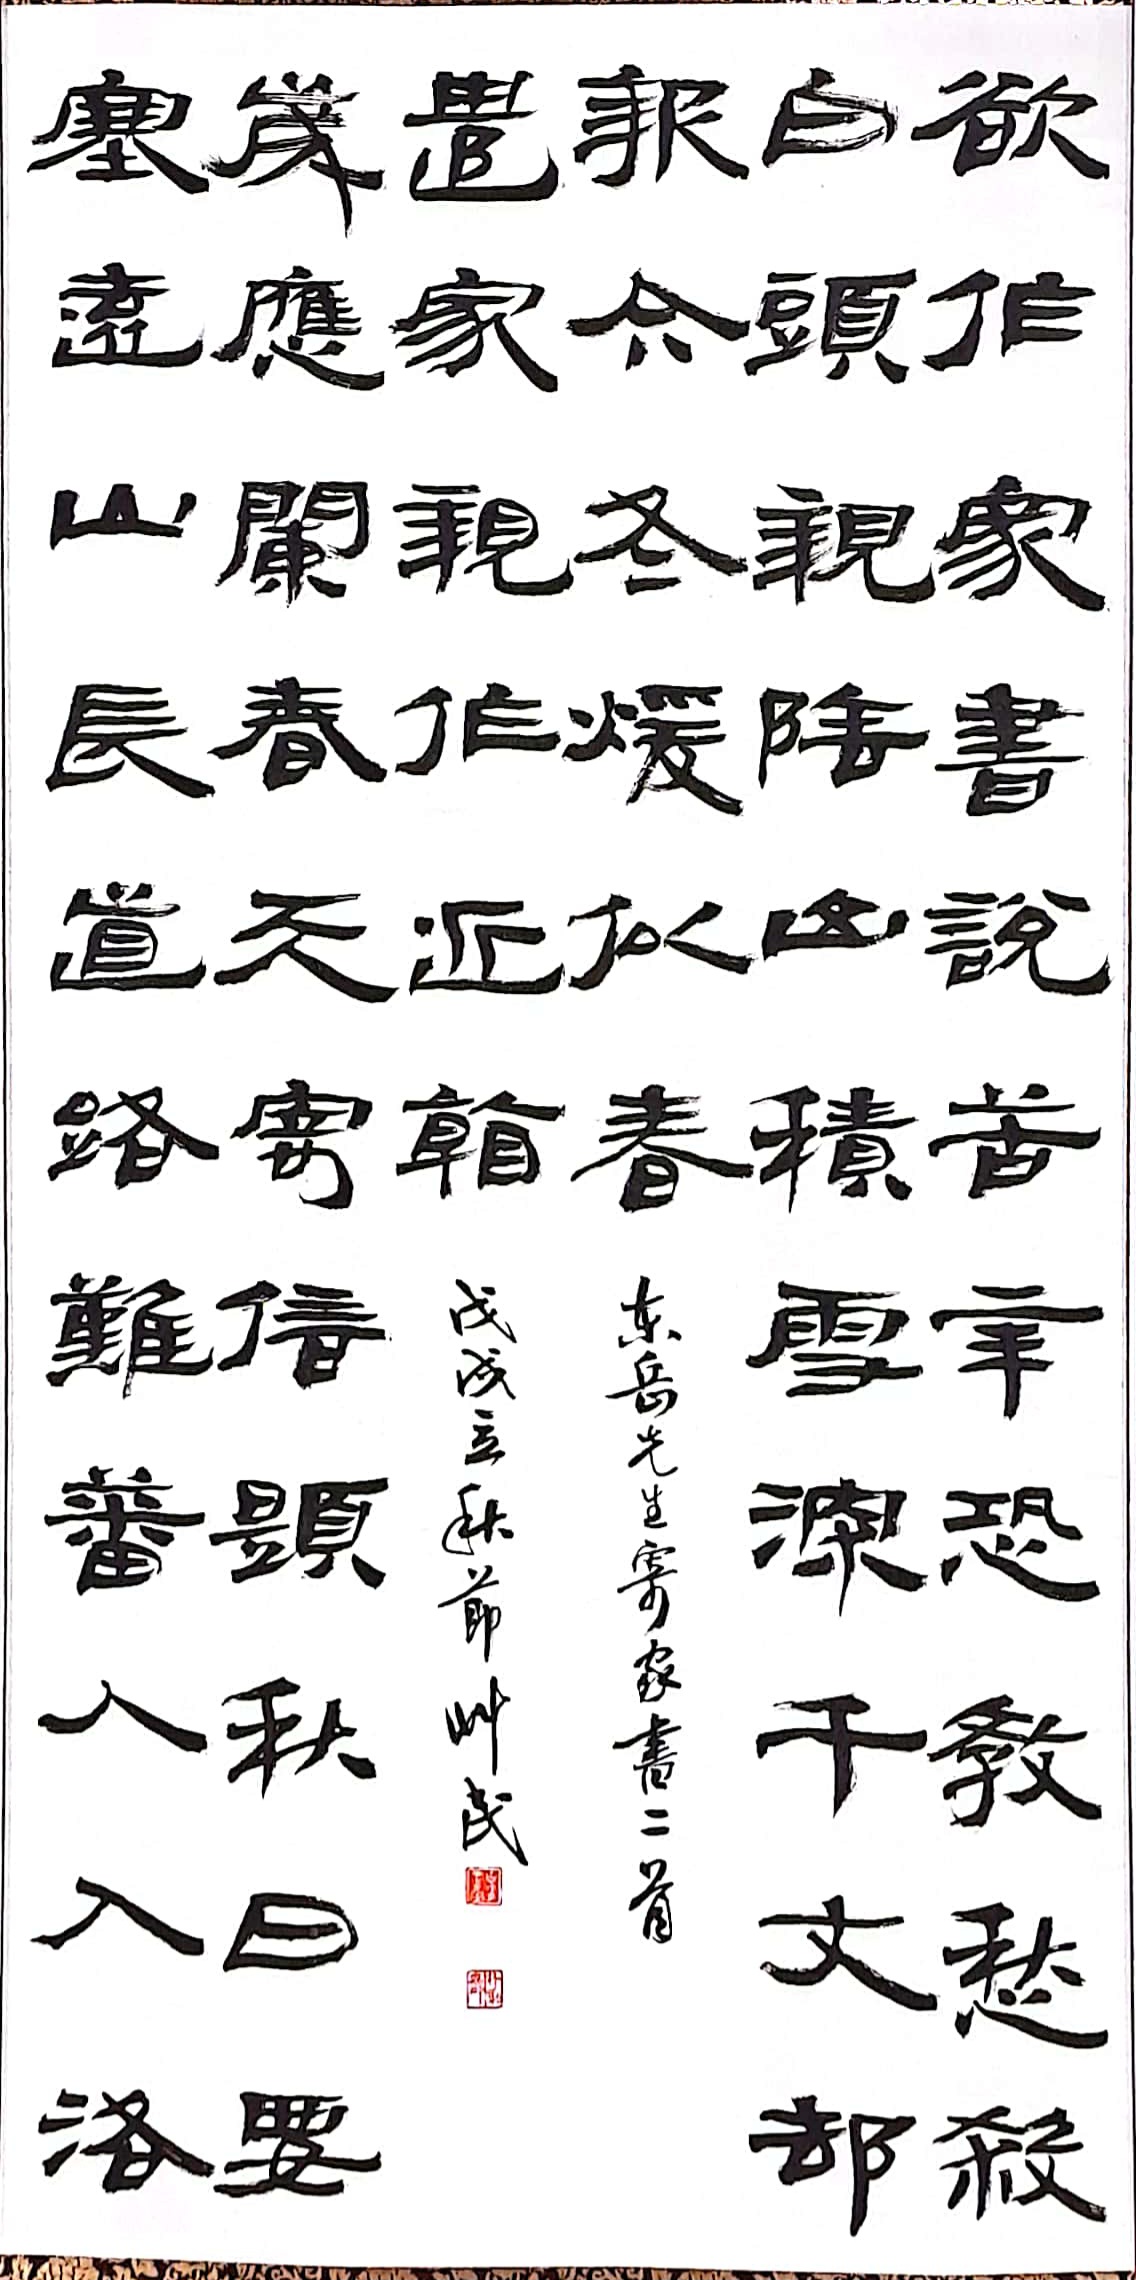 欲作家書說苦辛恐教愁殺
白頭親陰山積雪深千丈却
報今冬煖似春
塞遠山長道路難蕃人入洛
歲應闌春天寄信題秋日要
遣家親作近看
东岳先生寄家書二首
戊戌立秋節艸民